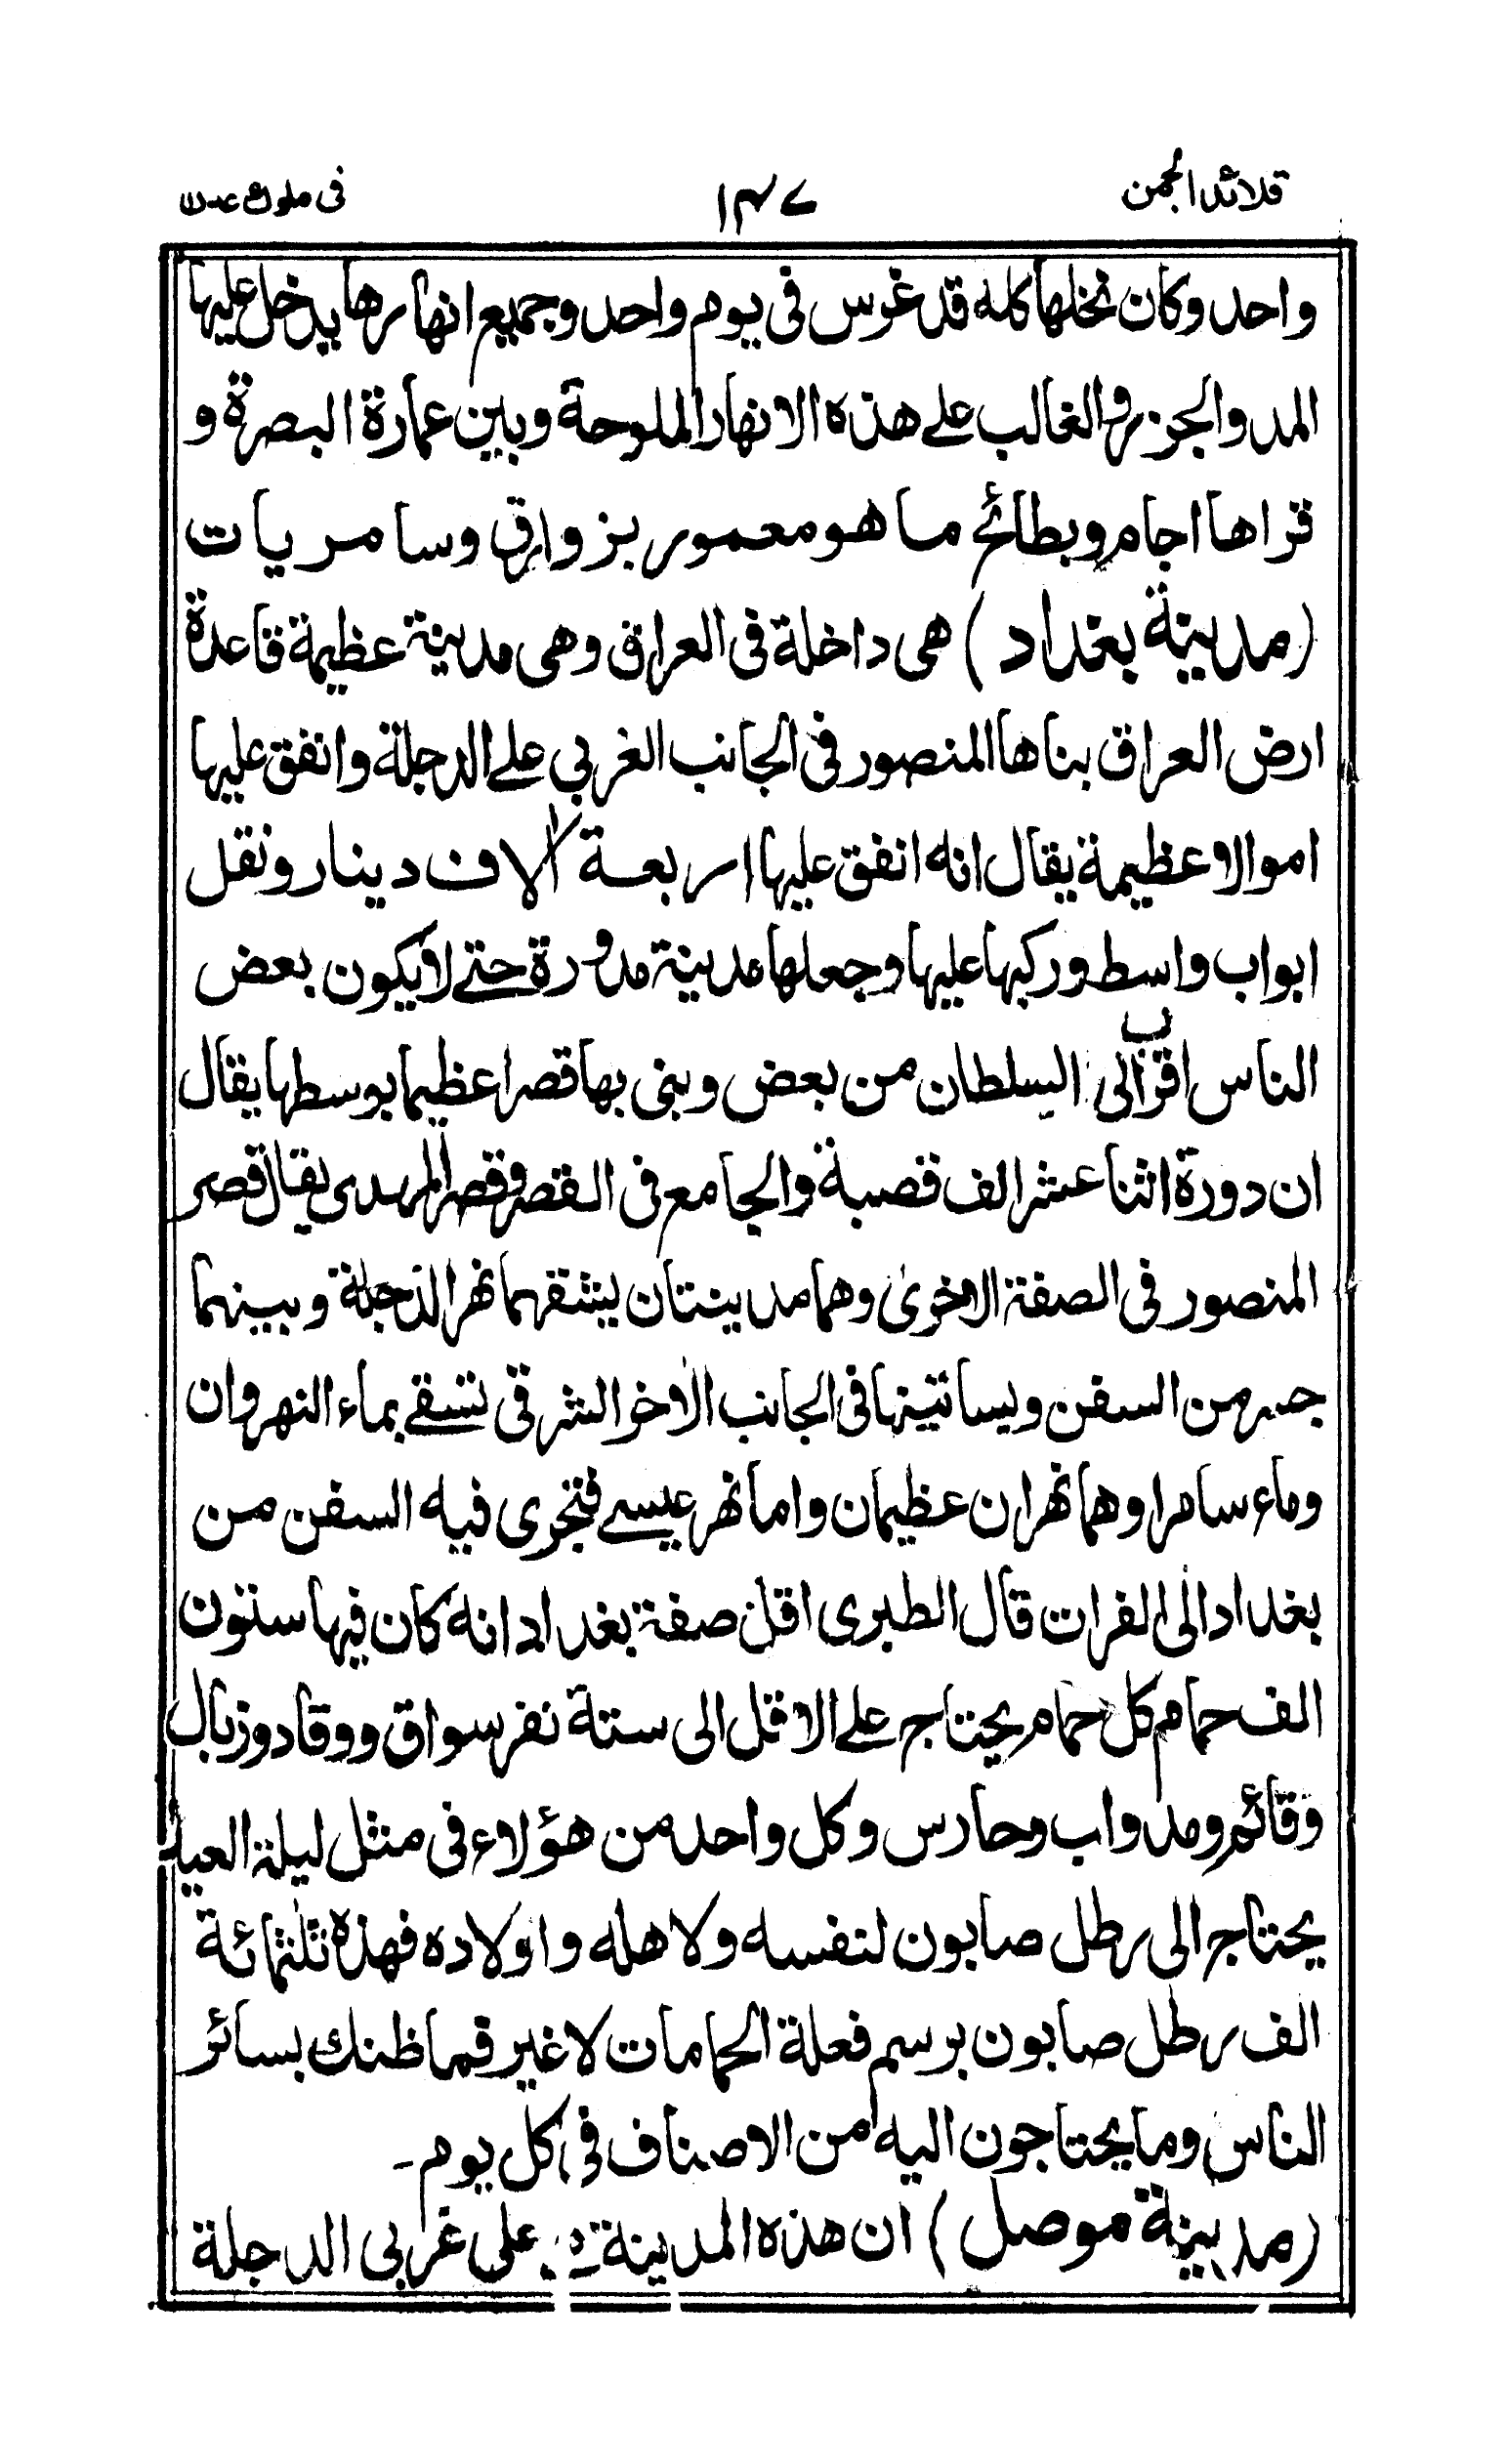 قلائد الجمن ١٤٧ فى ملوك عدن
واحد وكان نخلها كله قد غرس فى يوم واحد وجميع انهارها يدخل عليها
المد والجزر والغالب على هذه الانهار الملوحة وبين عمارة البصرة و
قراها اجام وبطائح ما هو معمور بزوارق وسامريات
(مدينة بغداد) هى داخلة فى العراق وهى مدينة عظيمة قاعدة
ارض العراق بناها المنصور فى الجانب الغربي على الدجلة وانفق عليها
اموالا عظيمة يقال انه انفق عليها اربعة آلاف دينار ونقل
ابواب واسط وركبها عليها وجعلها مدينة مدورة حتى لا يكون بعض
الناس اقرب الى السلطان من بعض وبنى بها قصرا عظيما بوسطها يقال
ان دورة اثنا عشر الف قصبة والجامع فى القصر وقصر المهدى يقال قصر
المنصور فى الصفة الاخرىٰ وهما مدينتان يشقهما نهر الدجلة وبينهما
جسر من السفن وبساتينها فى الجانب الاخر الشرقى تسقى بماء النهروان
وماء سامرا وهما نهران عظيمان واما نهر عيسى فتجرى فيه السفن من
بغداد الى الفرات قال الطبرى اقل صفة بغداد انه كان فيها ستون
الف حمام كل حمام يحتاج على الاقل الى ستة نفر سواق ووقاد وزبال
وقائم ومدواب وحارس وكل واحد من هؤلاء فى مثل ليلة العيد
يحتاج الى رطل صابون لنفسه ولاهله واولاده فهذه ثلثمائة
الف رطل صابون برسم فعلة الحمامات لا غير فما ظنك بسائر
الناس وما يحتاجون اليه من الاصناف فى كل يوم۔
(مدينة موصل) ان هذه المدينة على غربى الدجلة